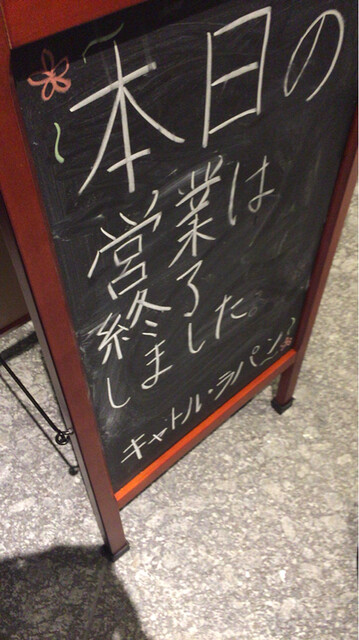 本日の
営業は
終了
しました。
キャトル・ラパン